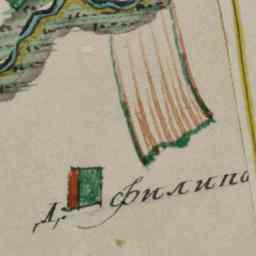 д. Филипо